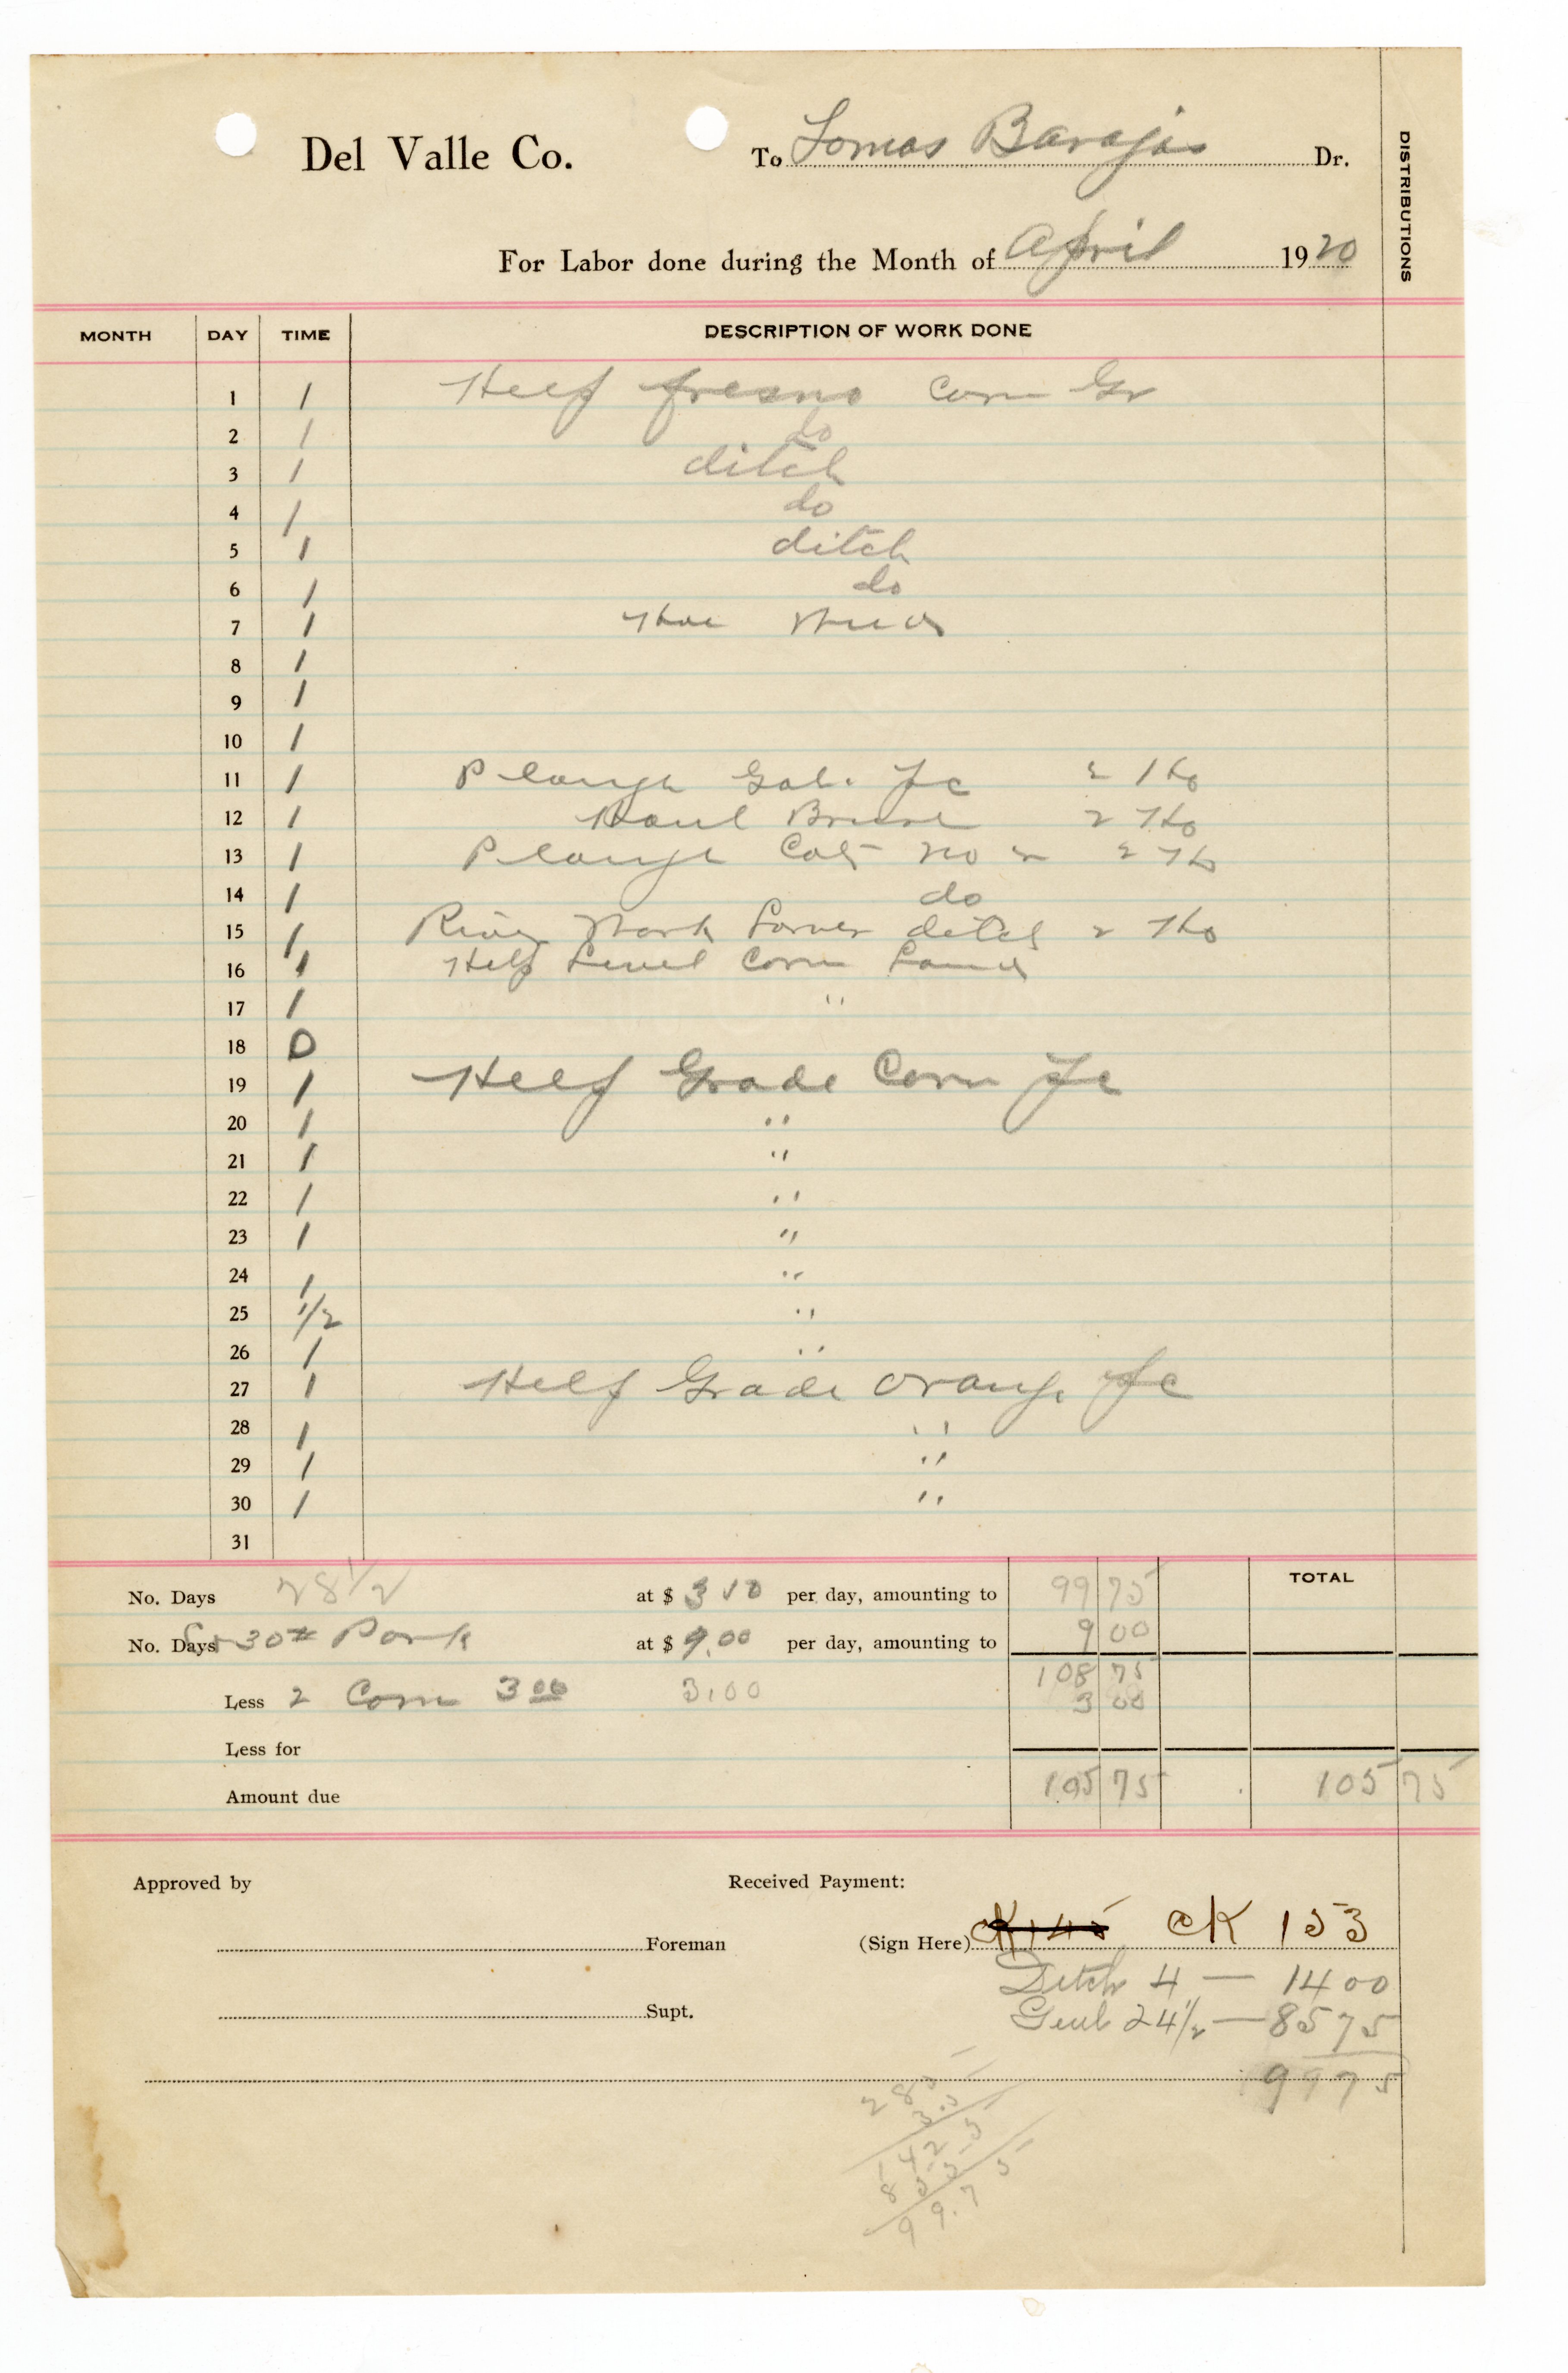 Del Valle Co. To Tomas Barajas Dr.
DISTRIBUTIONS
For Labor done during the Month of April 1920
MONTH DAY TIME DESCRIPTION OF WORK DONE
1 1 Help fresno Corn Gr
2 1 do
3 1 ditch
4 1 do
5 1 ditch
6 1 do
7 1 Hoe Weeds
8 1
9 1
10 1
11 1 Plough Gal. Jc 2 Ho
12 1 Haul Brush 2 Ho
13 1 Plough Cat no 2 2 Ho
14 1 do
15 1 River Work Lower ditch 2 Ho
16 1 Help Level Corn Land
17 1 "
18 0
19 1 Help Grade Corn Jc
20 1 "
21 1 "
22 1 "
23 1 "
24 1 "
25 1/2 "
26 1 "
27 1 Help Grade Orange Jc
28 1 "
29 1 "
30 1 "
31
TOTAL
No. Days 28 1/2 at $ 3 50 per day, amounting to 99 75
No. Days 30# Pork at $ 9.00 per day, amounting to 9 00
108 75
Less 2 Corn 3 00 3.00 3 00
Less for
Amount due 105 75 105 75
Approved by Received Payment:
Foreman (Sign Here) CK 145 CK 153
Ditch 4 — 14 00
Supt. Genl 24 1/2 — 85 75
99 75
285
3.5
1425
855
99.75